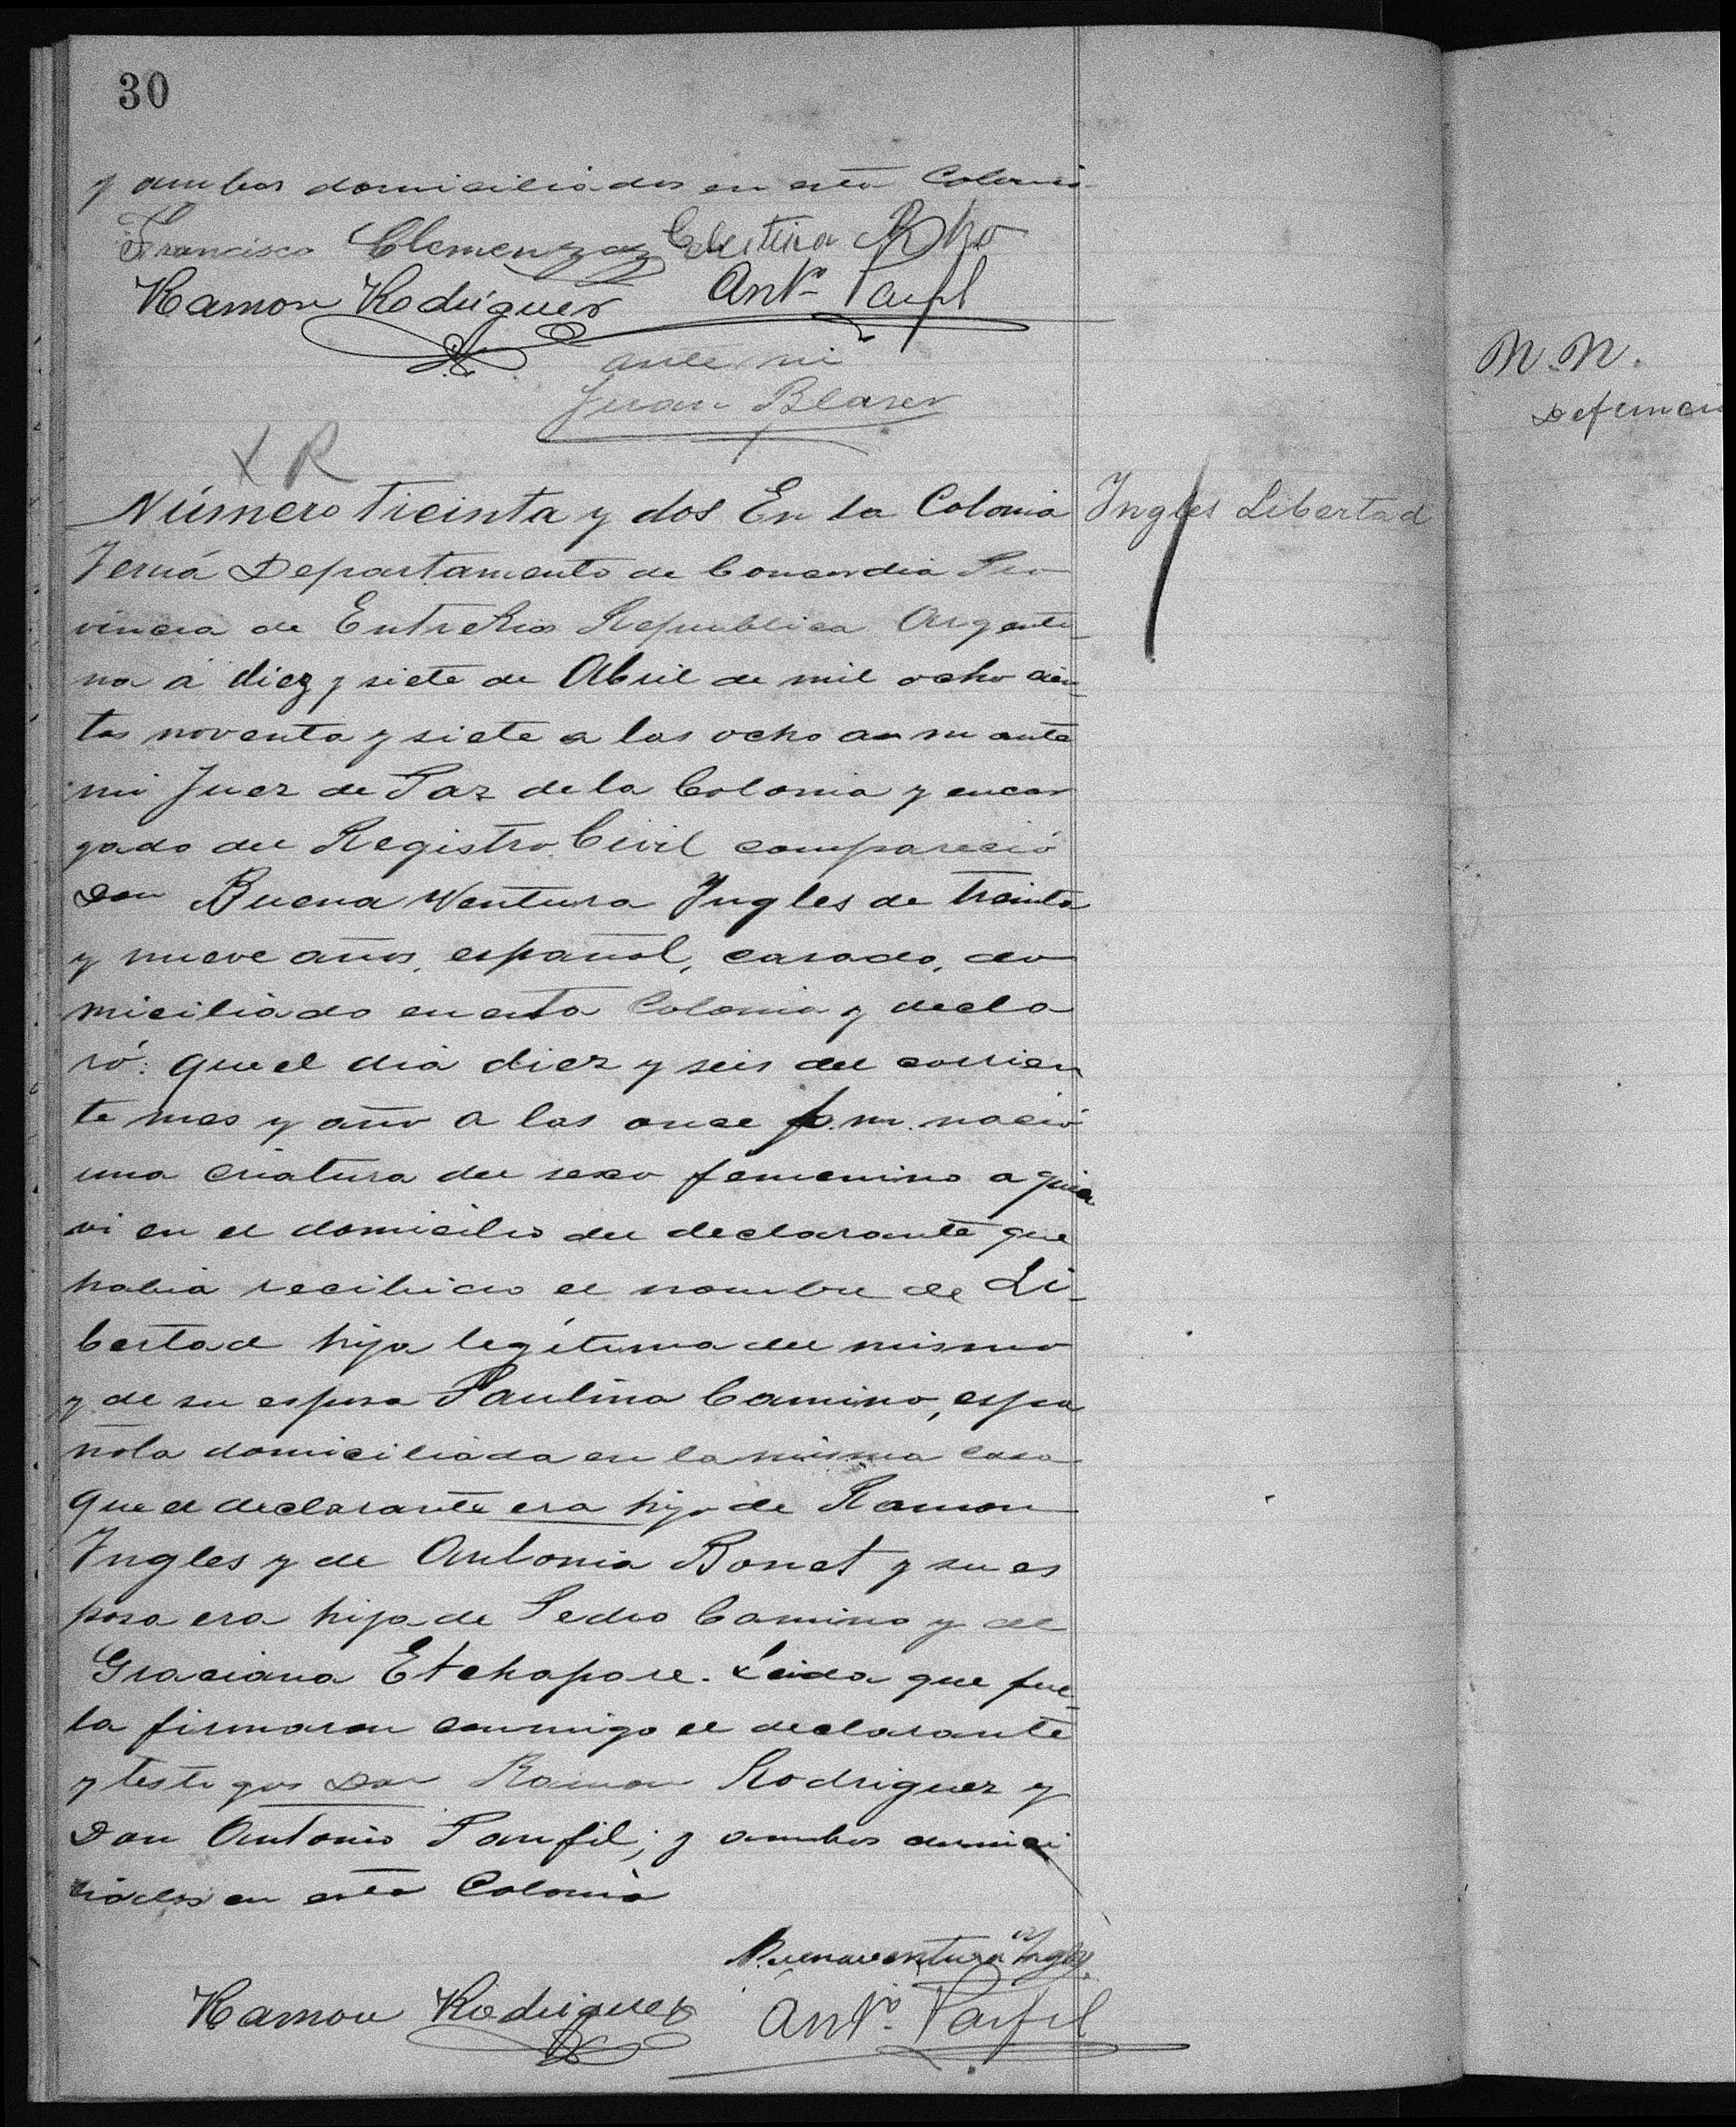 30
y ambos domiciliados en esta Colonia
Francisco Clemenzaz Celestina Rho
Ramon Rodriguez Antº Panfil
ante mi
Juan Blaser
X R
Número Treinta y dos En la Colonia
Yeruá Departamento de Concordia Pro
vincia de Entre Rios Republica Argenti-
na á diez y siete de Abril de mil ocho cien-
tos noventa y siete a las ocho a m ante
mi Juez de Paz de la Colonia y encar
gado del Registro Civil compareció
Don Buena Ventura Ingles de treinta
y nueve años, español, casado, do
miciliado en esta Colonia y decla
ró: que el dia diez y seis del corrien
te mes y año a las once p.m. nació
una criatura del sexo femenino a quien
vi en el domicilio del declarante que
habia recibido el nombre de Li-
bertad hija legítima del mismo
y de su esposa Paulina Camino, espa
ñola domiciliada en la misma casa
que el declarante era hijo de Ramon
Ingles y de Antonia Bonet y su es
posa era hija de Pedro Camino y de
Graciana Etchapare. Leida que fue-
la firmaron conmigo el declarante
y testigos Don Ramon Rodriguez y
Don Antonio Panfil; y ambos domici
liados en esta Colonia
Buenaventura Ingles
Ramon Rodriguez Antº Panfil
Ingles Libertad
N.N.
Defunci